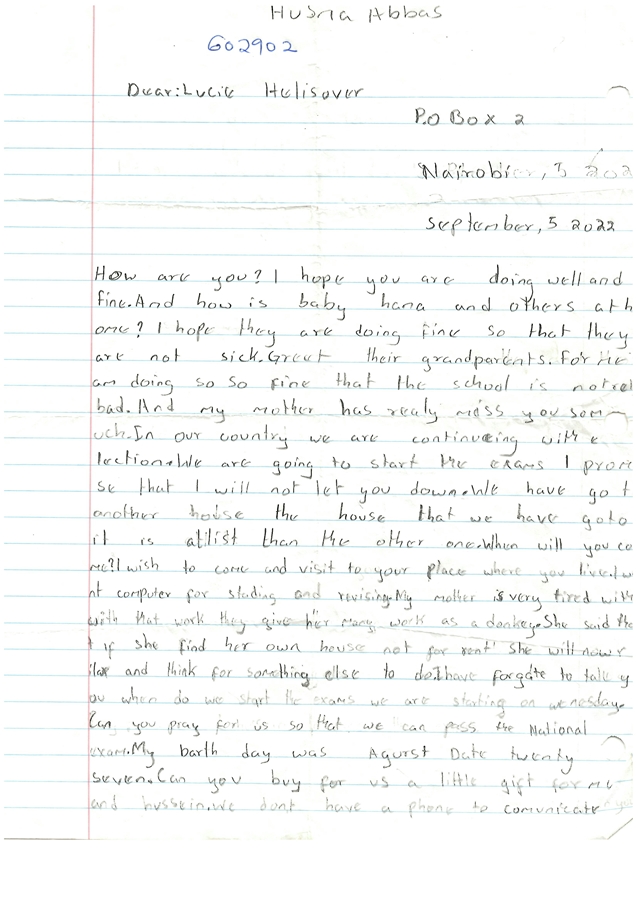 Husna Abbas
602902
Dear:Lucie Helisover
P.O Box 2
Nairobi
September, 5 2022
How are you? I hope you are doing well and
fine.And how is baby hana and others at h
ome? I hope they are doing fine so that they
are not sick.Greet their grandparents.For me
am doing so so fine that the school is not rel
bad.And my mother has realy miss you som
uch.In our country we are continueing with e
lection.We are going to start the exams I prom
se that I will not let you down.We have go t
another house the house that we have goto
it is atlist than the other one.When will you co
me?I wish to come and visit to your place where you live.I w
nt computer for stading and revising.My mother is very tired with
with that work they give her many work as a donkey.She said tha
t if she find her own house not for rent she will now r
ilax and think for something else to do.I have forgate to talk y
ou when do we start the exams we are starting on wenesday.
Can you pray for us so that we can pass the National
exam.My barth day was Agurst Date twenty
seven.Can you buy for us a little gift for me
and hussein.We dont have a phone to comunicate